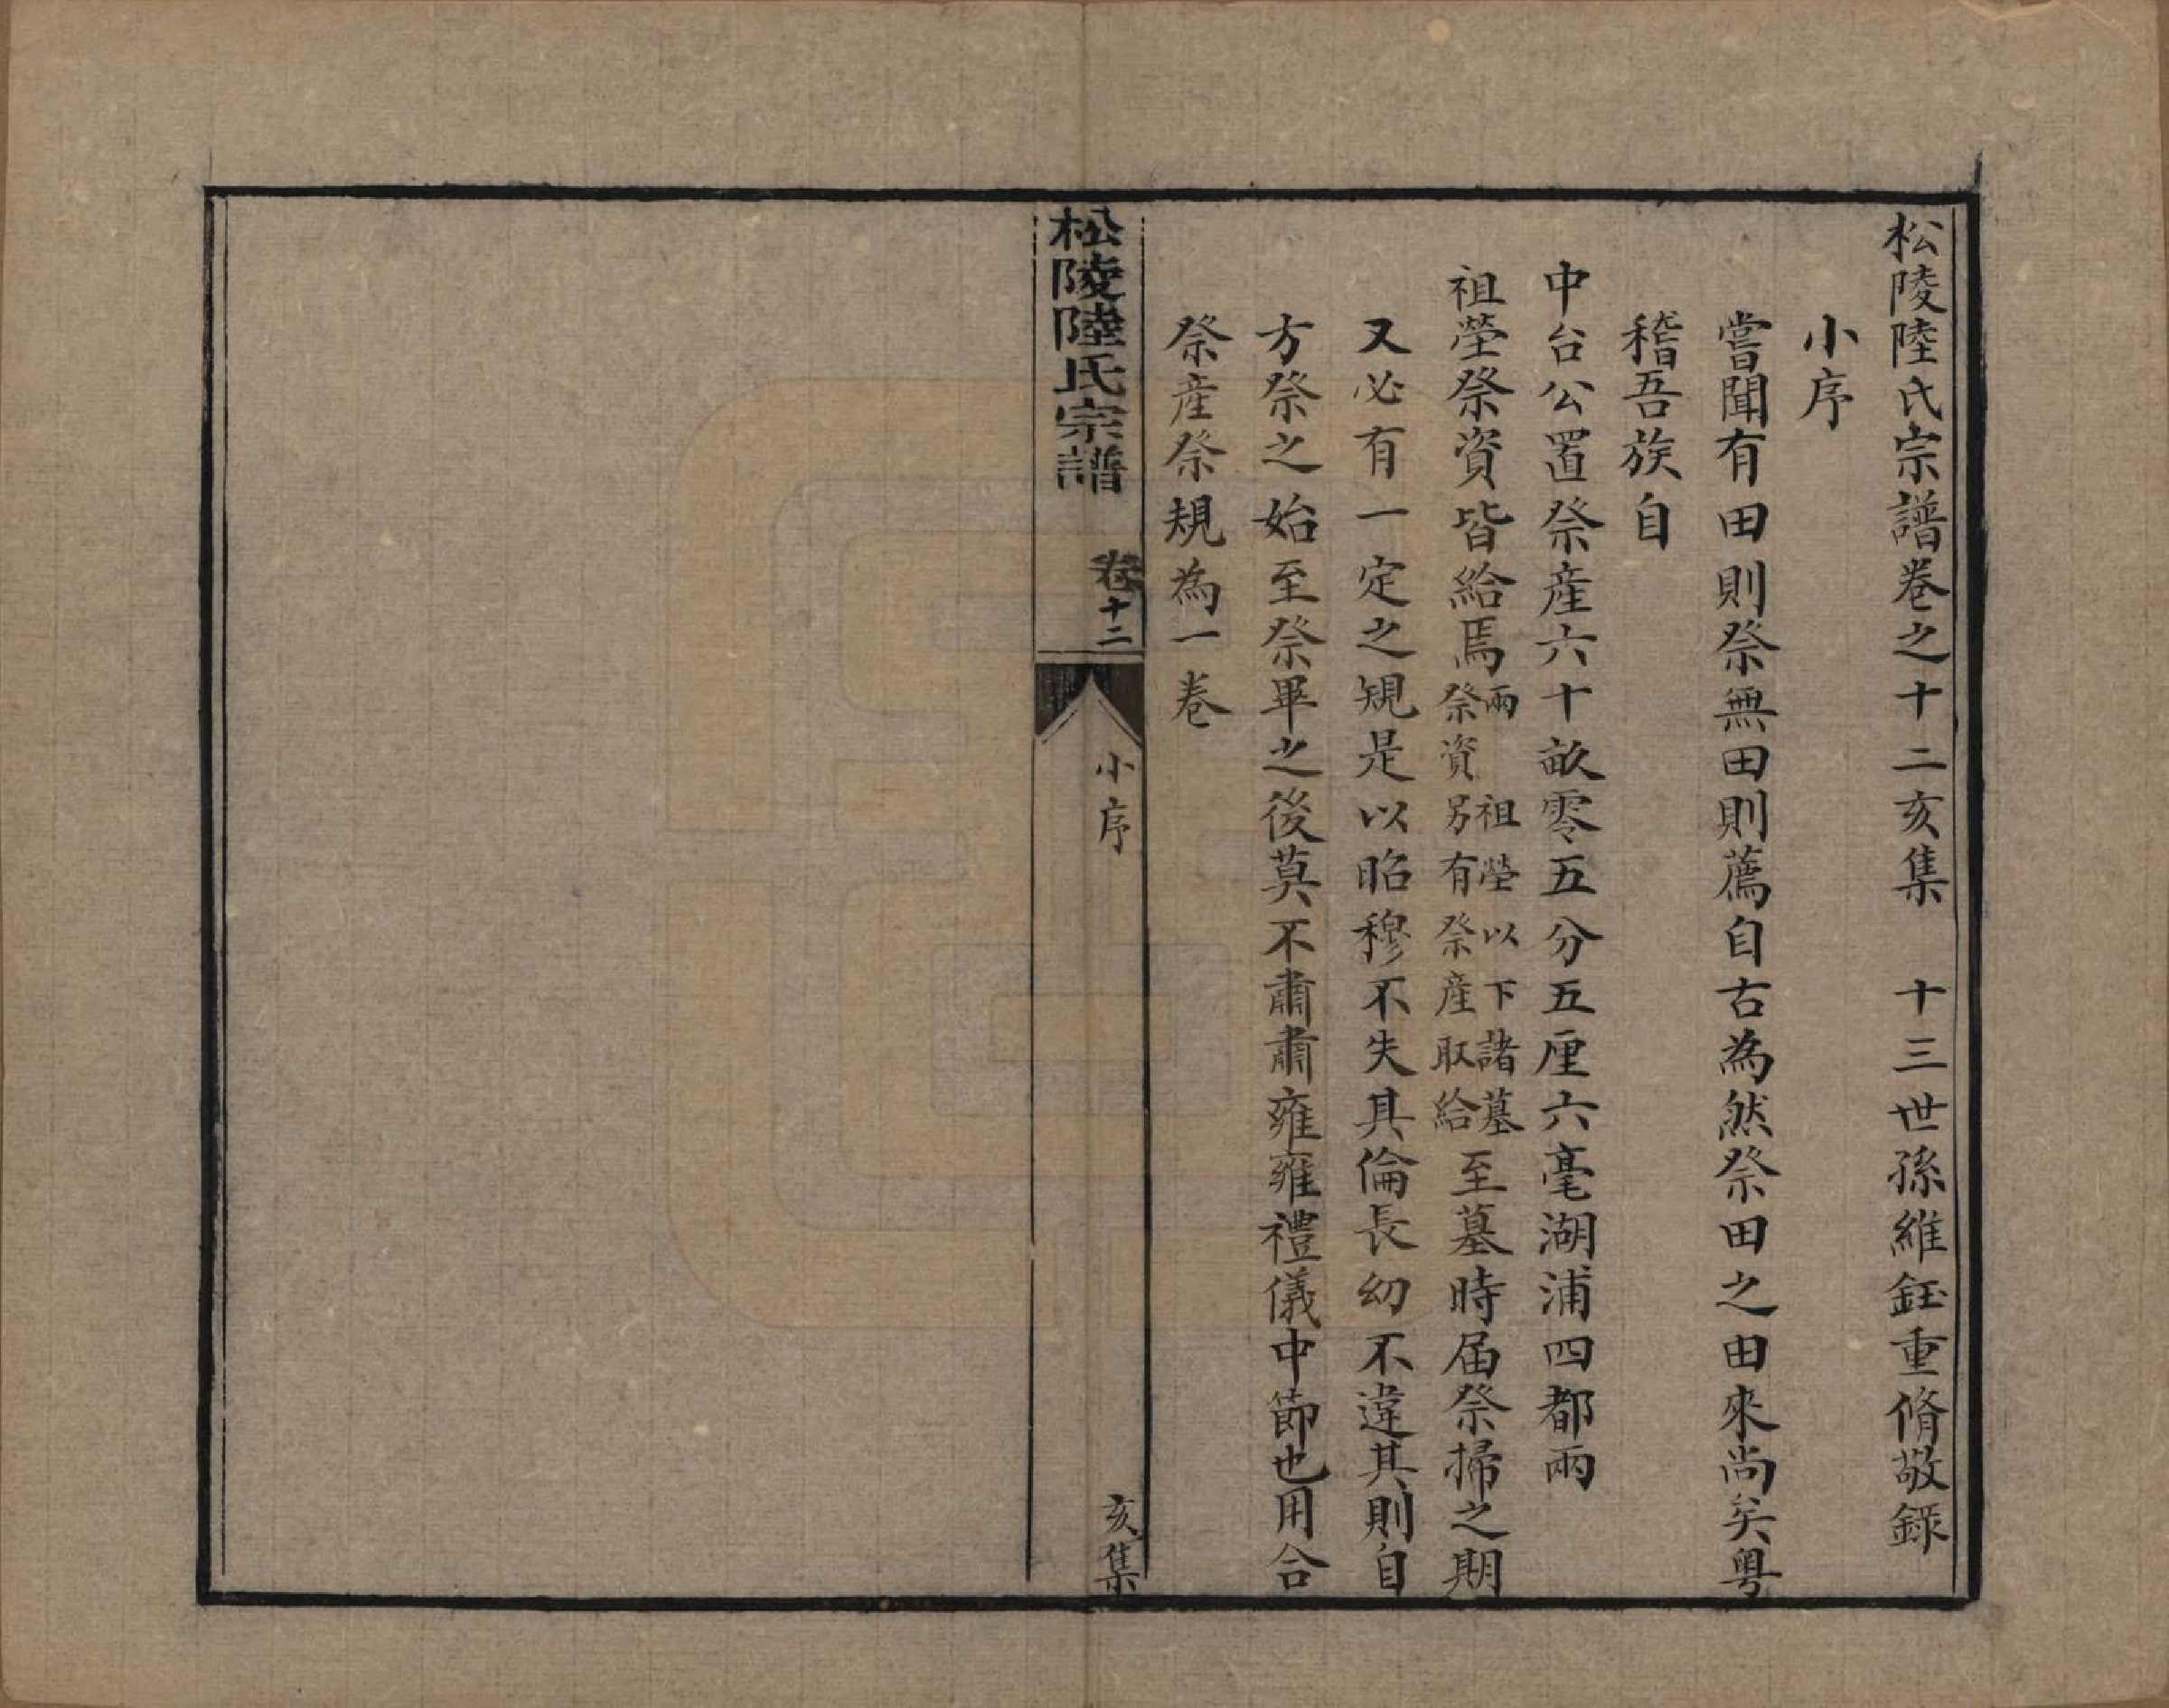 松陵陸氏宗譜卷之十二亥集　十三世孫維鈺重脩敬錄
小序
嘗聞有田則祭無田則薦自古為然祭田之由來尚矣粤
稽吾族自
中台公置祭産六十畝零五分五厘六毫湖浦四都兩
祖塋祭資皆給焉兩　祖塋以下諸墓祭資另有祭產取給至墓時届祭掃之期
又必有一定之規是以昭穆不失其倫長幼不違其則自
方祭之始至祭畢之後莫不肅肅雍雍禮儀中節也用合
祭産祭規為一卷
松陵陸氏宗譜　卷十二　小序　亥集